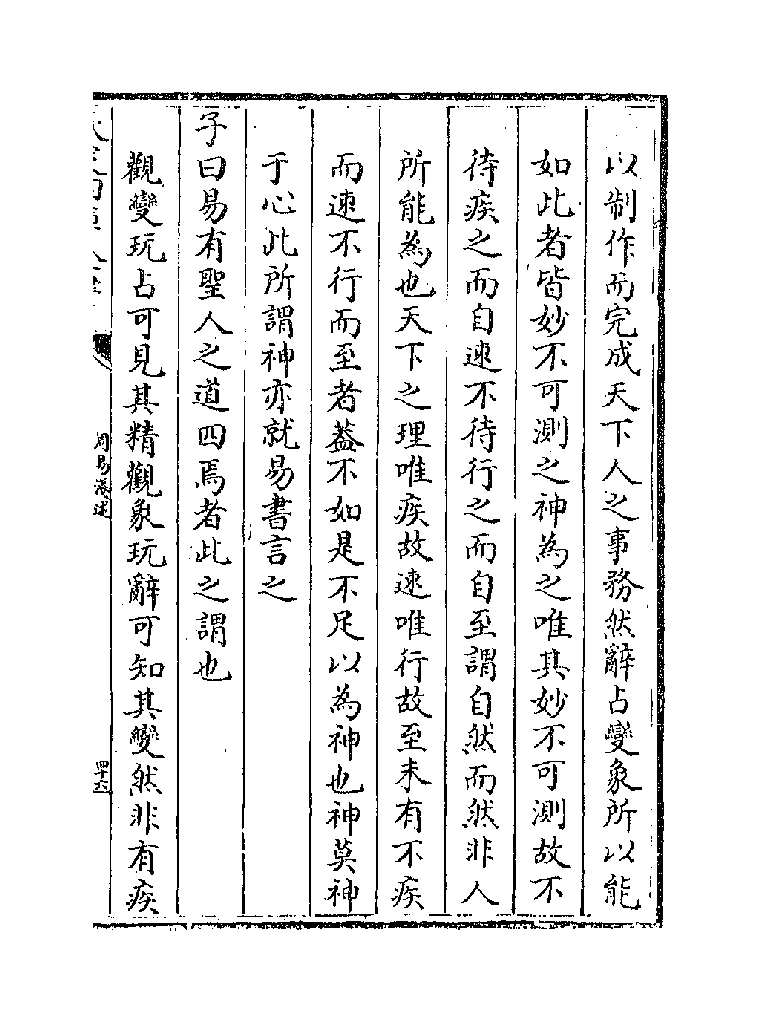 以制作而完成天下人之事務然辭占變象所以能
如此者皆妙不可測之神為之唯其妙不可測故不
待疾之而自速不待行之而自至謂自然而然非人
所能為也天下之理唯疾故速唯行故至未有不疾
而速不行而至者葢不如是不足以為神也神莫神
于心此所謂神亦就易書言之
子曰易有聖人之道四焉者此之謂也
觀變玩占可見其精觀象玩辭可知其變然非有疾
周易淺述
四十六